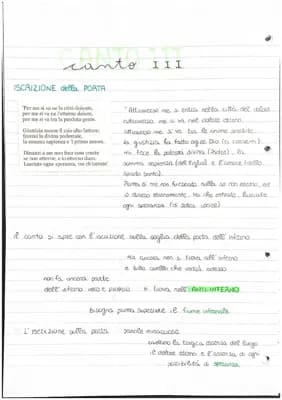 CANTO III
canto III
ISCRIZIONE della PORTA
'Per me si va ne la città dolente,
per me si va ne l'etterno dolore,
per me si va tra la perduta gente.
Giustizia mosse il mio alto fattore;
fecemi la divina podestate,
la somma sapïenza e 'l primo amore.
Dinanzi a me non fuor cose create
se non etterne, e io etterno duro.
Lasciate ogne speranza, voi ch'intrate'
"Attraverso me si entra nella città del dolore
attraverso me si va nel dolore eterno
attraverso me si va tra le anime perdute.
la giustizia ha fatto agire Dio (a crearmi):
mi fece la potestà divina (Padre), la
somma sapienza (del figlio) e l'amore (dello
spirito santo).
Prima di me non fu creato nulla se non eterno, ed
io duro eternamente. Voi che entrate, lasciate
ogni speranza
il canto si apre con l'iscrizione sulla soglia della porta dell'inferno
ma ancora non si trova all'inferno
e tutto quello che vedrà adesso
non fa ancora parte
dell'inferno vero e proprio e si trova nell'ANTI-INFERNO
bisogna prima superare il fiume infernale
L'iscrizione sulla porta parole minacciose
evocano la tragica eternità del luogo
il dolore eterno e l'assenza di ogni
possibilità di speranza